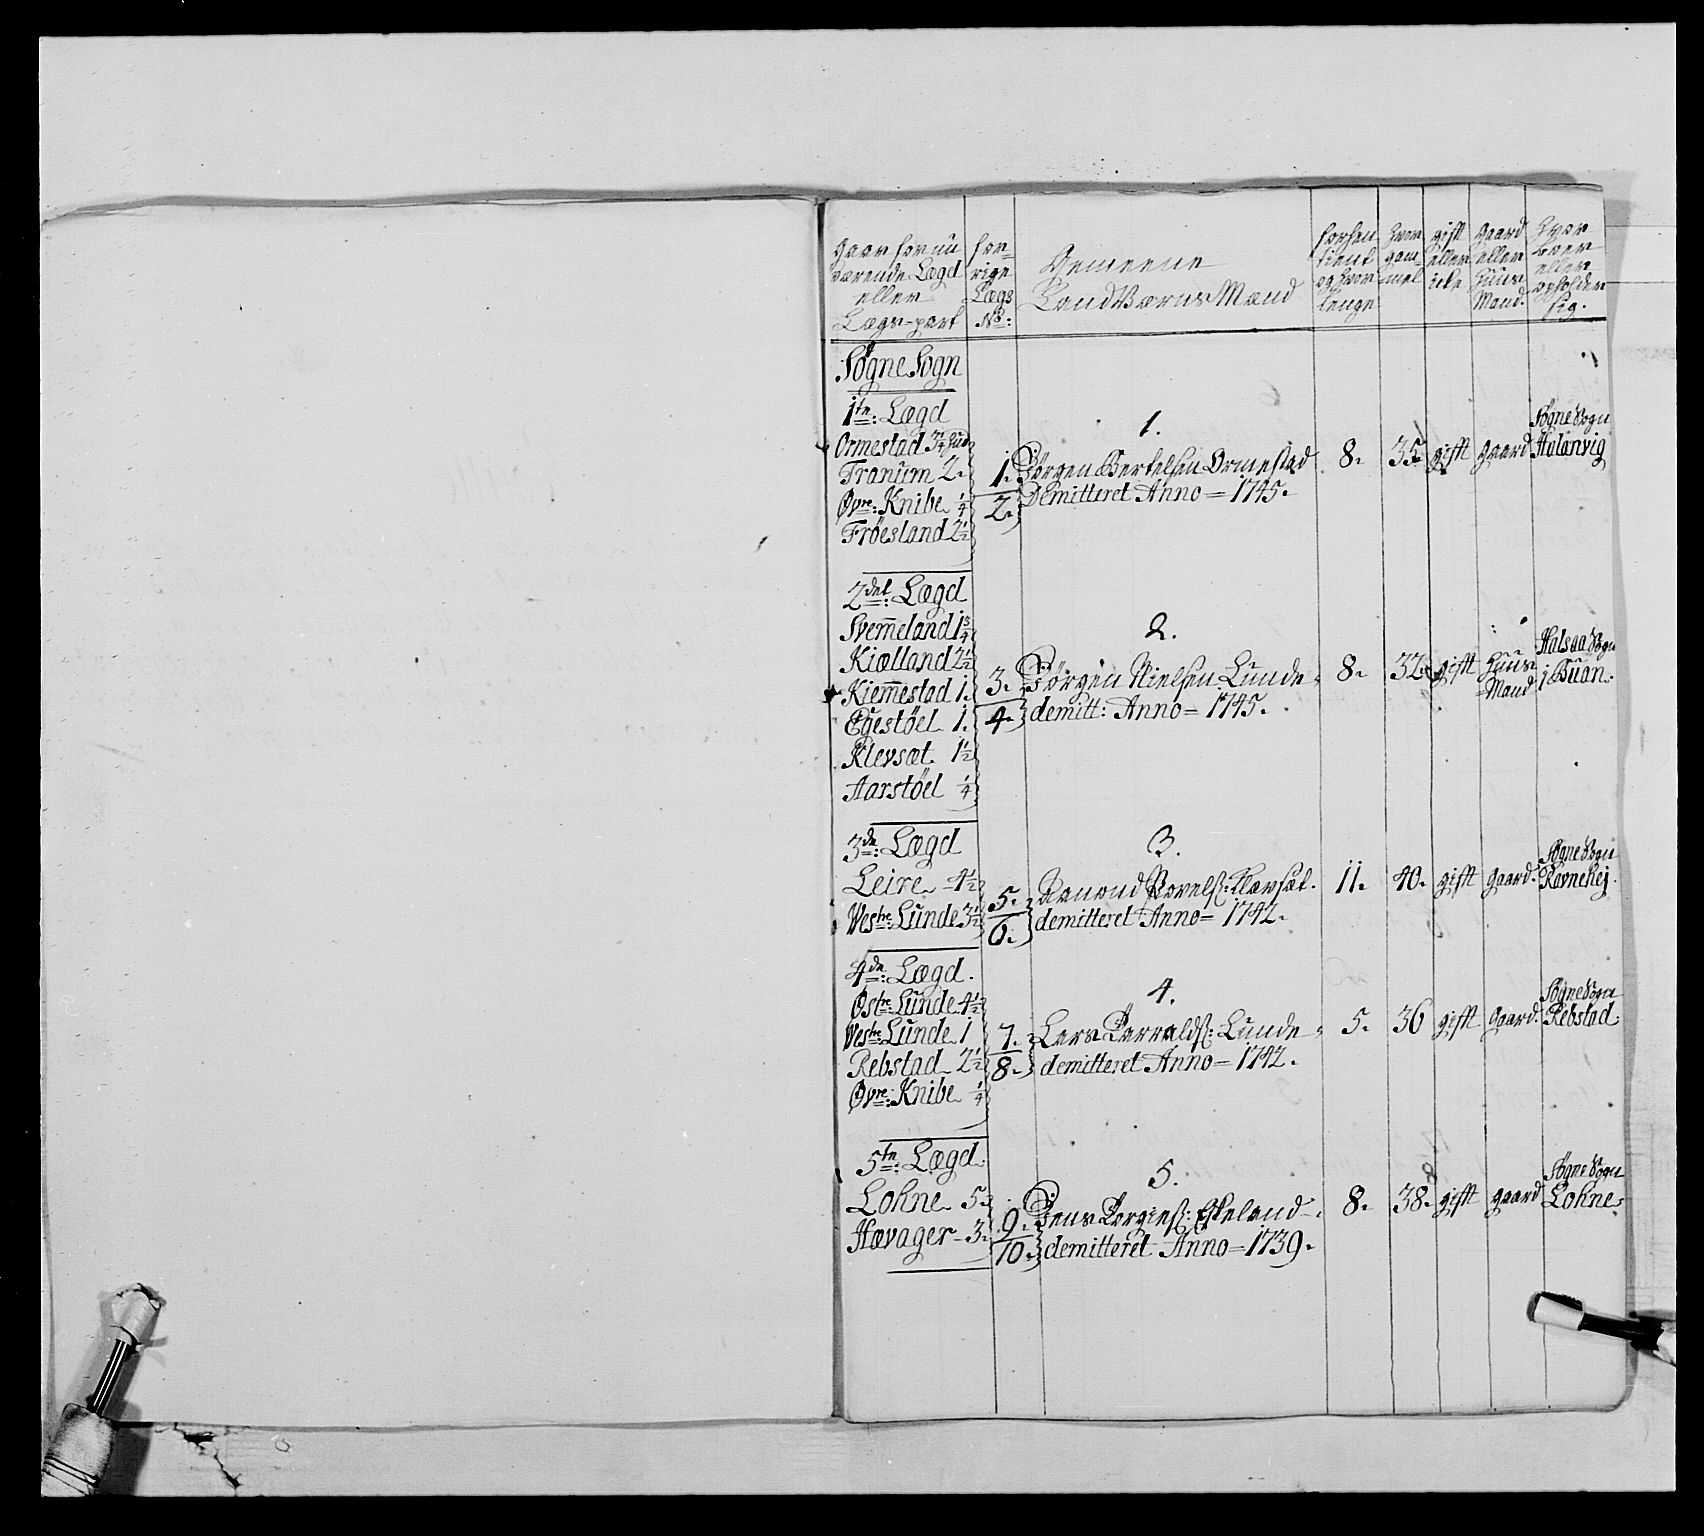 gaar for nu
værende Lægd
eller
Lægs-part
for-
rige
Lægs
No:
Gemeene
LandVærns Mænd
forhen
tient
og hvor
lenge
hvor
gam-
mel
gift
eller
icke
gaard
eller
Huus
Mand.
hvor
boer
eller
opholder
sig.
Søgne Sogn
1te: Lægd
Ormestad 3 1/4 hud
Tranum 2.
Øvre: Knibe 1/4
Frøesland 2 1/2
1.
2.
1.
Jørgen Bertelsen Ormestad
Demitteret Anno = 1745.
8.
35.
gifft
gaard
Søgne Sogn
Hølenvig
2det: Lægd
Svem̄eland 1 3/4
Kiælland 2 1/2
Kiem̄estad 1.
Egestøel 1.
Klevsæt 1 1/2
Aarstøel 1/4
3.
4.
2.
Jørgen Nielsen Lunde
demitt: Anno = 1745.
8.
32.
gifft
Huus
Mand
Halsaa Sogn
i Buan.
3de: Lægd
Leire 4 1/2
Vestre: Lunde 3 1/2
5.
6.
3.
Aamond Povels: Klævsæt.
demitteret Anno = 1742.
11.
40.
gifft
gaard.
Søgne Sogn
Ravnehej.
4de: Lægd.
Østre: Lunde 4 1/2
Vestre: Lunde 1
Rebstad 2 1/2
Øvre: Knibe 1/4
7.
8.
4.
Lars Tarralds: Lunde
demitteret Anno = 1742.
5.
36
gifft
gaard.
Søgne Sogn
Rebstad.
5te: Lægd.
Lohne 5
Hævager 3.
9.
10.
5.
Jens Torgies: Eskeland
demitteret Anno = 1739.
8.
38.
gifft
gaard
Søgne Sogn
Lohne